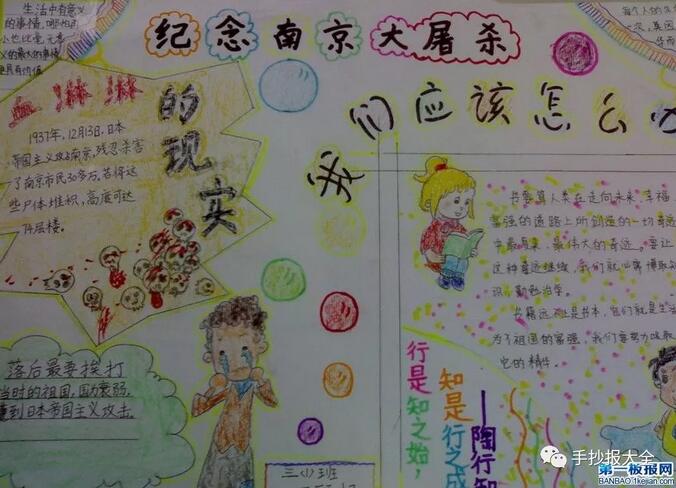 生活中有意义
的事情,哪怕再
小也比毫无意
义的最大的事情
更具有价值
纪念南京大屠杀
每个人的
血淋淋
的现实
1937年,12月13日,日本
帝国主义攻占南京,残忍杀害
了南京市民30多万。若将这
些尸体堆积,高度可达
74层楼。
我们应该怎么
书籍算人类在走向未来幸福
富强的道路上所创造的一切奇迹
中最复杂,最伟大的奇迹。要让
这种奇迹继续,我们就必需博取知
识,勤勉治学。
书籍
是书本,它们就是生活
为了祖国的富强,我们要努力吸取
它的精华。
落后最要挨打
当时的祖国,国力衰弱,
遭到日本帝国主义攻击。
行是知之始,
知是行之成
——陶行知
三(1)班
手抄报大全
第一板报网
BANBAO.1kejian.com